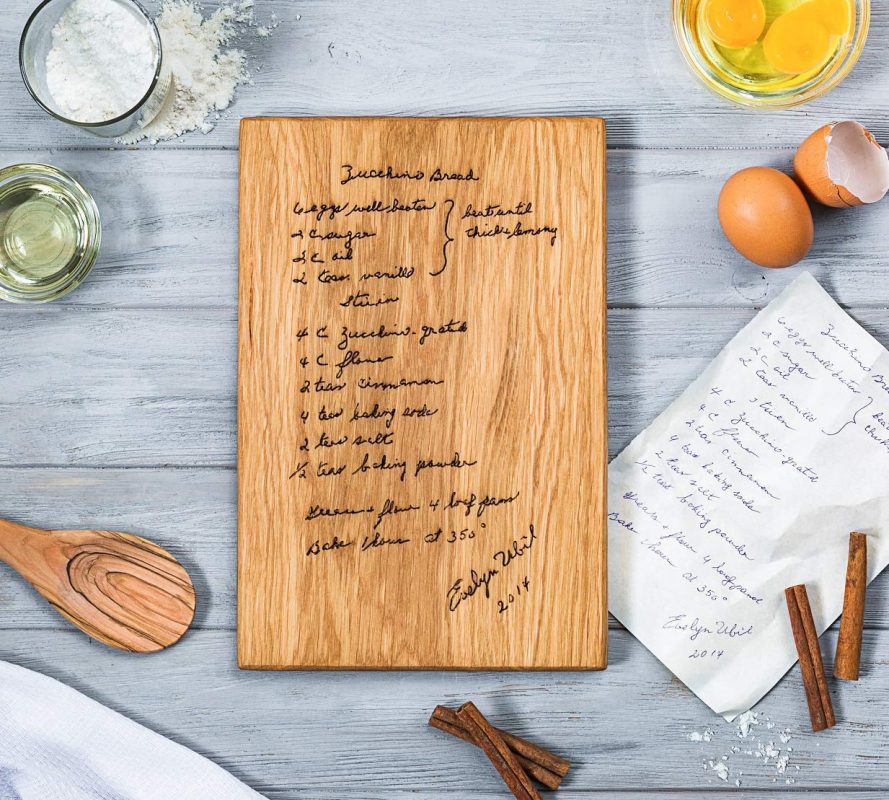 Zucchini Bread
6 eggs well beaten } beat until
2 C sugar thick & lemony
2 C oil
2 teas. vanilla
Stir in
4 C Zucchini - grated
4 C flour
2 teas cinnamon
4 teas baking soda
2 teas salt
1/2 teas baking powder
Grease + flour 4 loaf pans
Bake 1 hour at 350°
Evelyn Ubil
2014
Zucchini Brea
6 eggs well beaten } bea
2 C sugar
2 C oil
2 teas vanilla
Stir in
4 C Zucchini - grated
4 C flour
2 teas cinnamon
4 teas baking soda
2 teas salt
1/2 teas baking powder
Grease + flour 4 loaf pans
Bake 1 hour at 350°
Evelyn Ubil
2014